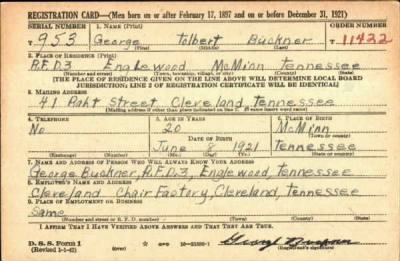 REGISTRATION CARD—(Men born on or after February 17, 1897 and on or before December 31, 1921)
SERIAL NUMBER 1. NAME (Print) ORDER NUMBER
T 953 George Tolbert Buckner T 11422
(First) (Middle) (Last)
2. PLACE OF RESIDENCE (Print)
R.F.D.3 Englewood McMinn Tennessee
(Number and street) (Town, township, village, or city) (County) (State)
[THE PLACE OF RESIDENCE GIVEN ON THE LINE ABOVE WILL DETERMINE LOCAL BOARD
JURISDICTION; LINE 2 OF REGISTRATION CERTIFICATE WILL BE IDENTICAL]
3. MAILING ADDRESS
41 Street Cleveland, Tennessee
(Mailing address if other than place indicated on line 2. If same insert word same)
4. TELEPHONE 5. AGE IN YEARS 6. PLACE OF BIRTH
No 20 McMinn
DATE OF BIRTH (Town or county)
June 8 1921 Tennessee
(Exchange) (Number) (Mo.) (Day) (Yr.) (State or country)
7. NAME AND ADDRESS OF PERSON WHO WILL ALWAYS KNOW YOUR ADDRESS
George Buckner, R.F.D.3, Englewood, Tennessee
8. EMPLOYER'S NAME AND ADDRESS
Cleveland Chair Factory, Cleveland, Tennessee
9. PLACE OF EMPLOYMENT OR BUSINESS
Same
(Number and street or R. F. D. number) (Town) (County) (State)
I AFFIRM THAT I HAVE VERIFIED ABOVE ANSWERS AND THAT THEY ARE TRUE.
D. S. S. Form 1
(Revised 1-1-42) (over) George
(Registrant's signature)